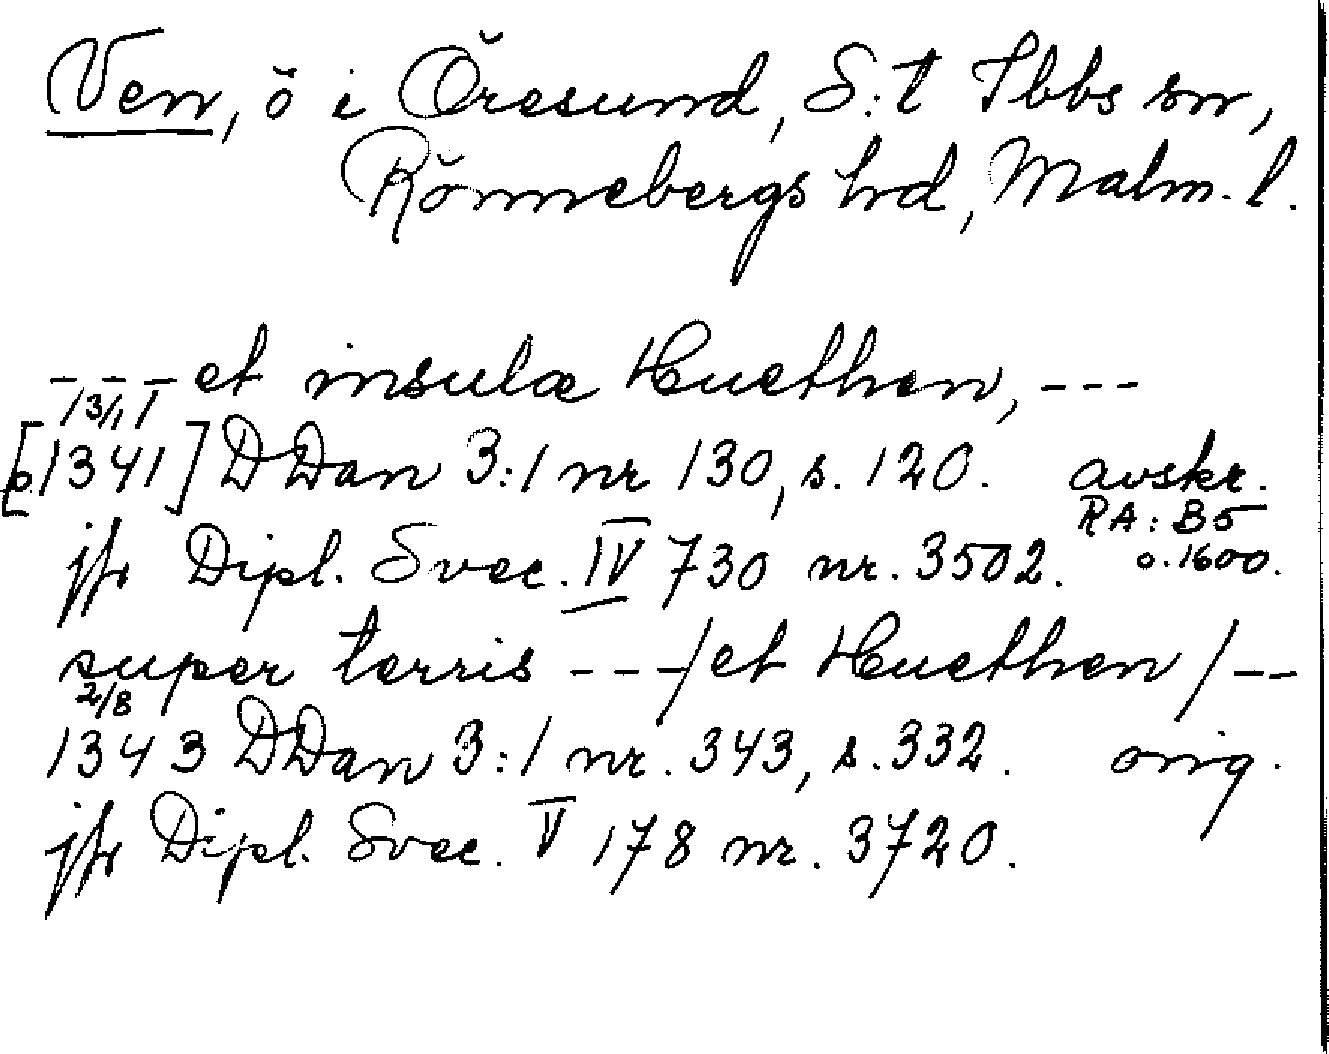 Ven, ö i Öresund, S:t Ibbs sn,
Rönnebergs hrd, Malm. l.
--- et insula Huethen, ---
/3/1/
[o. 1341] DDan 3:1 nr 130, s. 120. avskr.
RA: B5
jfr Dipl. Svec. IV 730 nr. 3502. o. 1600.
super terris ---/et Huethen/--
2/8
1343 DDan 3:1 nr. 343, s. 332. orig.
jfr Dipl. Svec. V 178 nr. 3720.